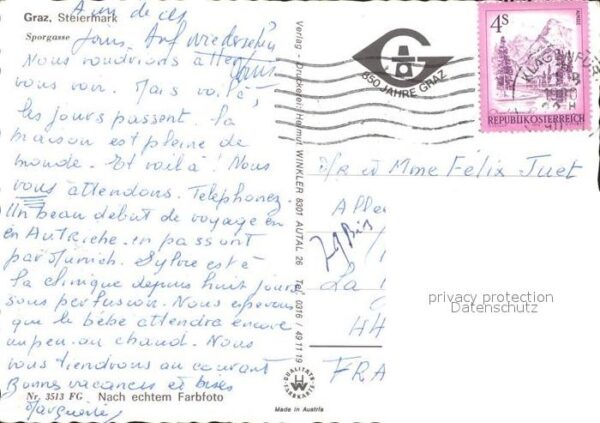 Graz, Steiermark
Sporgasse
Auf wiedersehn
Nous voudrions
vous voir. Mais voilà,
les jours passent. La
maison est pleine de
monde. Et voilà! Nous
vous attendons. Telephonez.
Un beau début de voyage en
en Autriche en passant
par Munich. Sylvie est à
la clinique depuis huit jours
sous perfusion. Nous espérons
que le bébé attendra encore
un peu au chaud. Nous
vous tiendrons au courant
Bonnes vacances et bises
Nr. 3513 FG Nach echtem Farbfoto
Marguerite
Verlag - Druckerei: Helmut WINKLER 8301 AUTAL 26 Tel. 0316 / 49 11 19
QUALITÄTS
FARBKARTE
Made in Austria
850 JAHRE GRAZ
KLAGENFURT
4S
REPUBLIK ÖSTERREICH
M/R et Mme Félix Juet
Allée
La
HH
FRA
privacy protection
Datenschutz